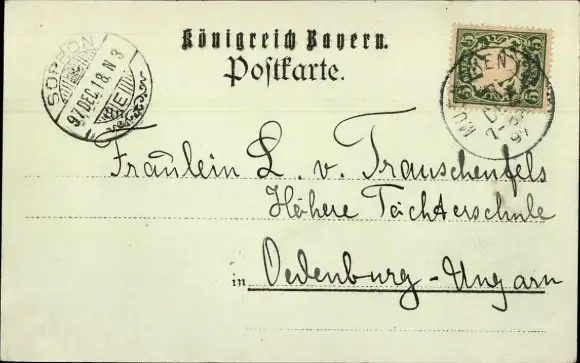 Königreich Bayern.
Postkarte.
SOPRON
97 DEC. 18. N 3
5 5
5 5
MÜ
DEZ
97
Fräulein L. v. Trauschenfels
Höhere Töchterschule
in Oedenburg-Ungarn